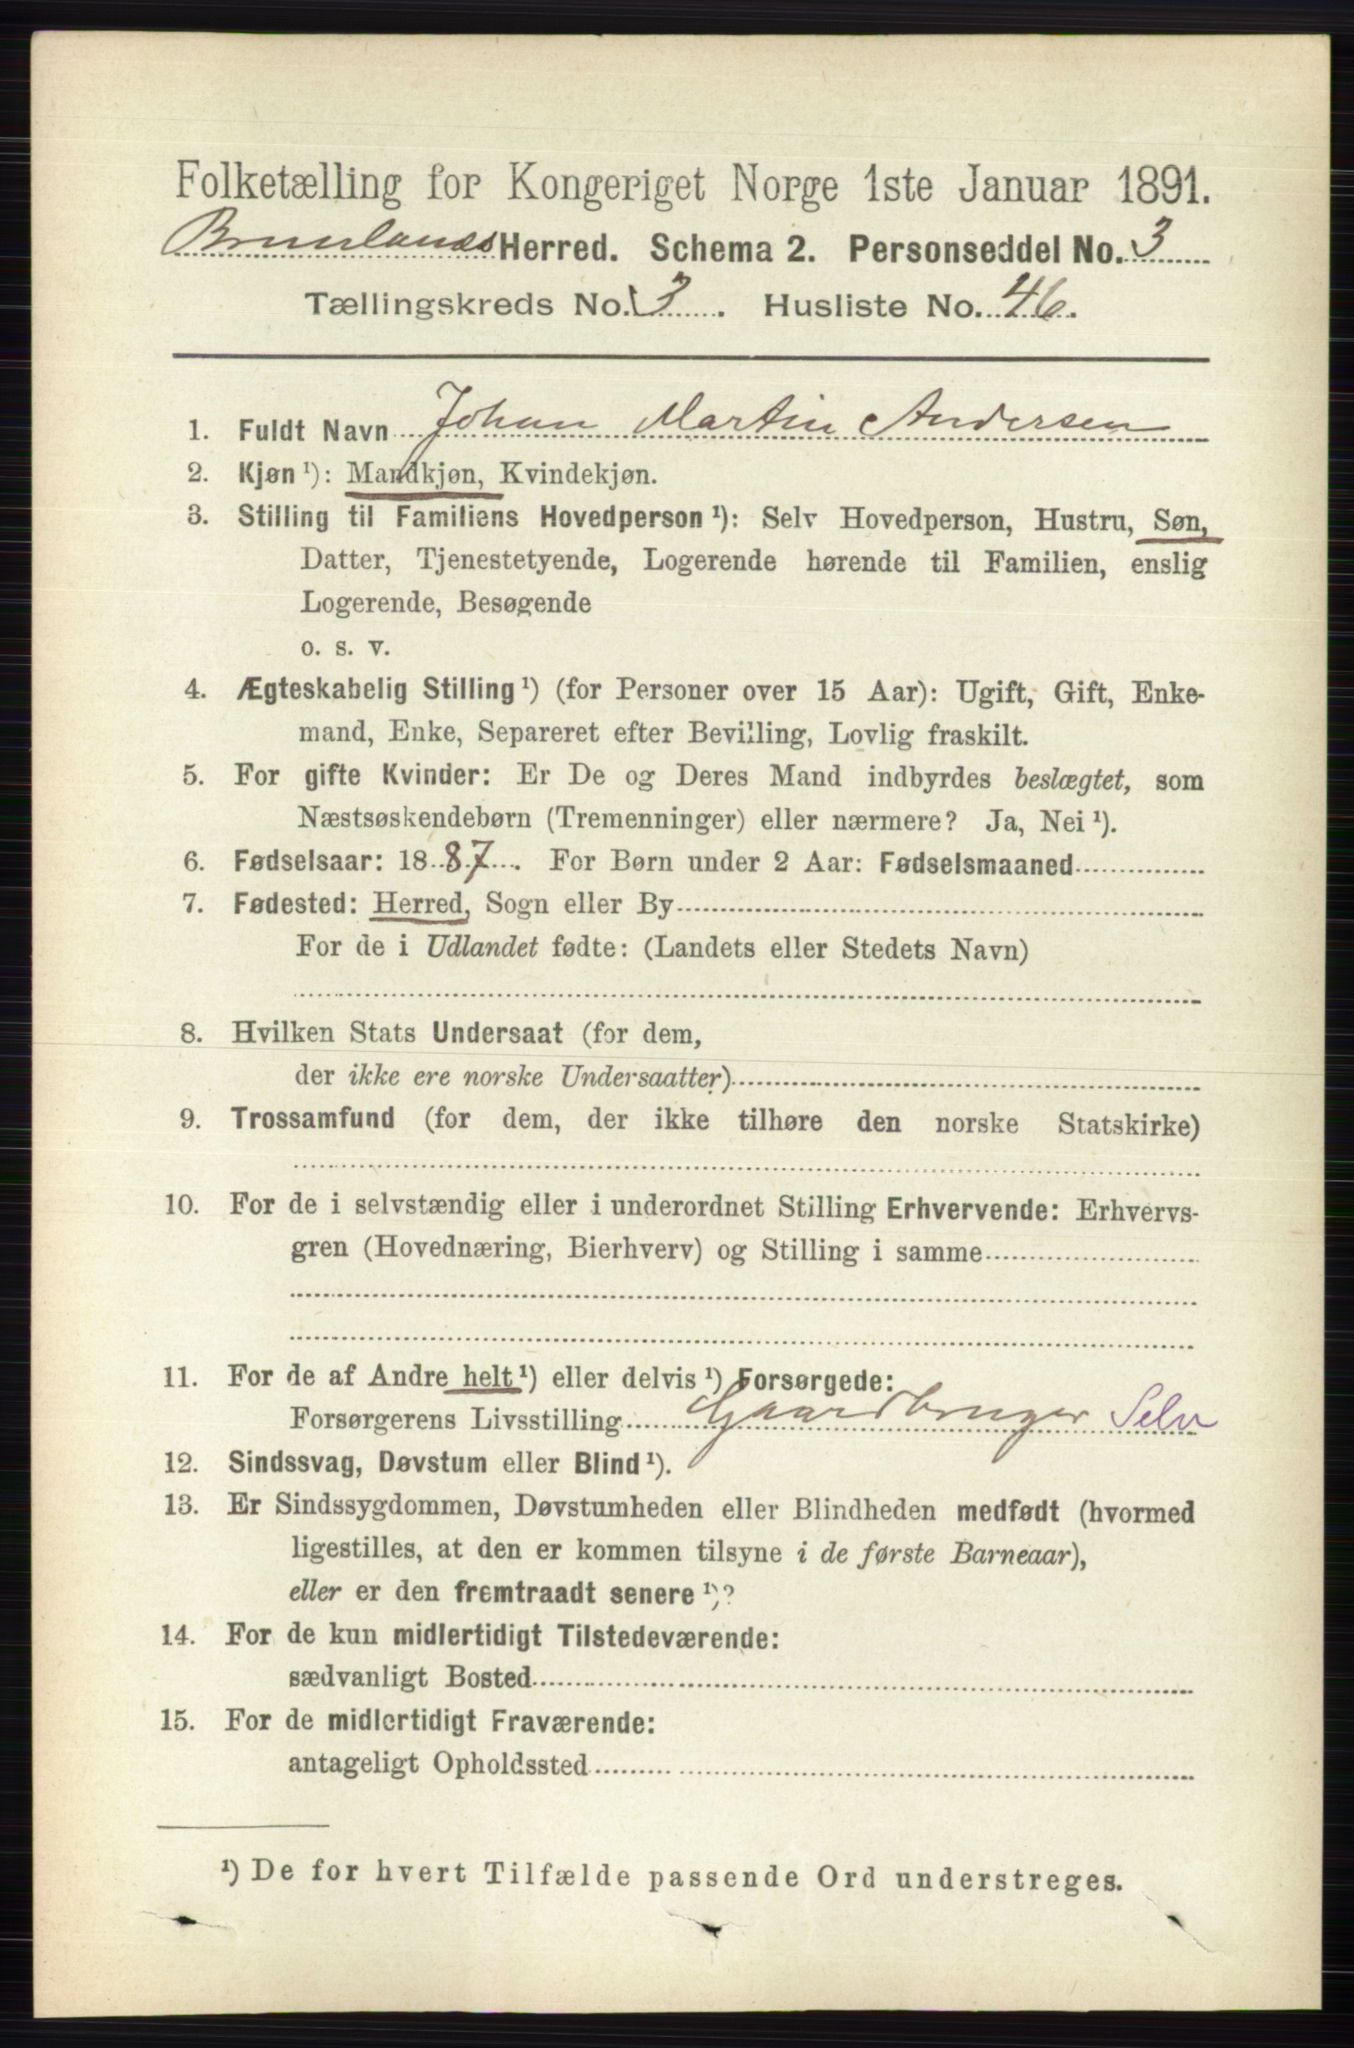 Folketælling for Kongeriget Norge 1ste Januar 1891.
Brunlanes Herred. Schema 2. Personseddel No. 3
Tællingskreds No. 3. Husliste No. 46.
1. Fuldt Navn Johan Martin Andersen
2. Kjøn¹): Mandkjøn, Kvindekjøn.
3. Stilling til Familiens Hovedperson¹): Selv Hovedperson, Hustru, Søn,
Datter, Tjenestetyende, Logerende hørende til Familien, enslig
Logerende, Besøgende
o. s. v.
4. Ægteskabelig Stilling¹) (for Personer over 15 Aar): Ugift, Gift, Enke-
mand, Enke, Separeret efter Bevilling, Lovlig fraskilt.
5. For gifte Kvinder: Er De og Deres Mand indbyrdes beslægtet, som
Næstsøskendebørn (Tremenninger) eller nærmere? Ja, Nei¹).
6. Fødselsaar: 1887. For Børn under 2 Aar: Fødselsmaaned
7. Fødested: Herred, Sogn eller By
For de i Udlandet fødte: (Landets eller Stedets Navn)
8. Hvilken Stats Undersaat (for dem,
der ikke ere norske Undersaatter)
9. Trossamfund (for dem, der ikke tilhøre den norske Statskirke)
10. For de i selvstændig eller i underordnet Stilling Erhvervende: Erhvervs-
gren (Hovednæring, Bierhverv) og Stilling i samme
11. For de af Andre helt¹) eller delvis¹) Forsørgede:
Forsørgerens Livsstilling Gaardbruger Selv
12. Sindssvag, Døvstum eller Blind¹).
13. Er Sindssygdommen, Døvstumheden eller Blindheden medfødt (hvormed
ligestilles, at den er kommen tilsyne i de første Barneaar),
eller er den fremtraadt senere¹)?
14. For de kun midlertidigt Tilstedeværende:
sædvanligt Bosted
15. For de midlertidigt Fraværende:
antageligt Opholdssted
¹) De for hvert Tilfælde passende Ord understreges.